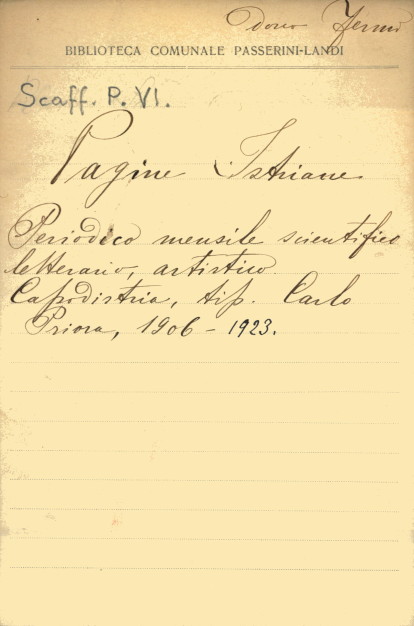 Dono Fermi
BIBLIOTECA COMUNALE PASSERINI-LANDI
Scaff. P. VI.
Pagine Istriane
Periodico mensile scientifico
letterario, artistico
Capodistria, tip. Carlo
Priora, 1906 - 1923.